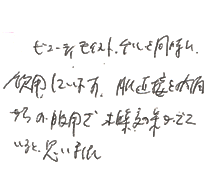 ビューティモイスト、ゲルと同時に
飲用しています。肌に直接と内側
からの服用で相乗効果がでて
いると思いました